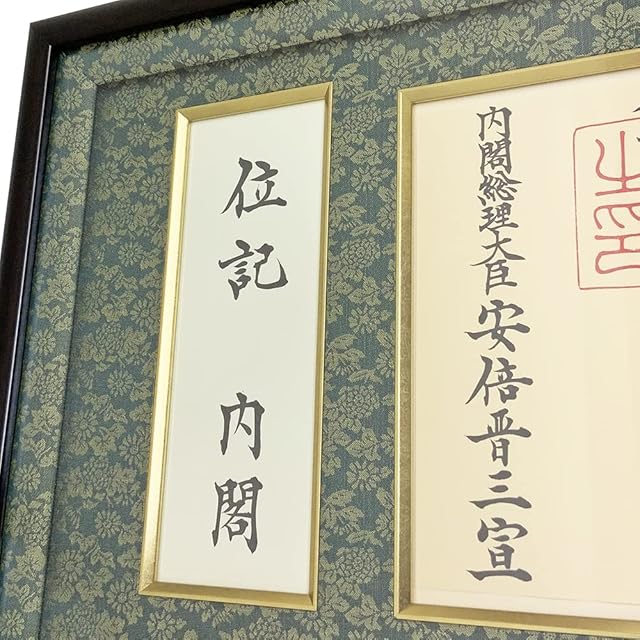 内閣総理大臣安倍晋三宣
位記 内閣